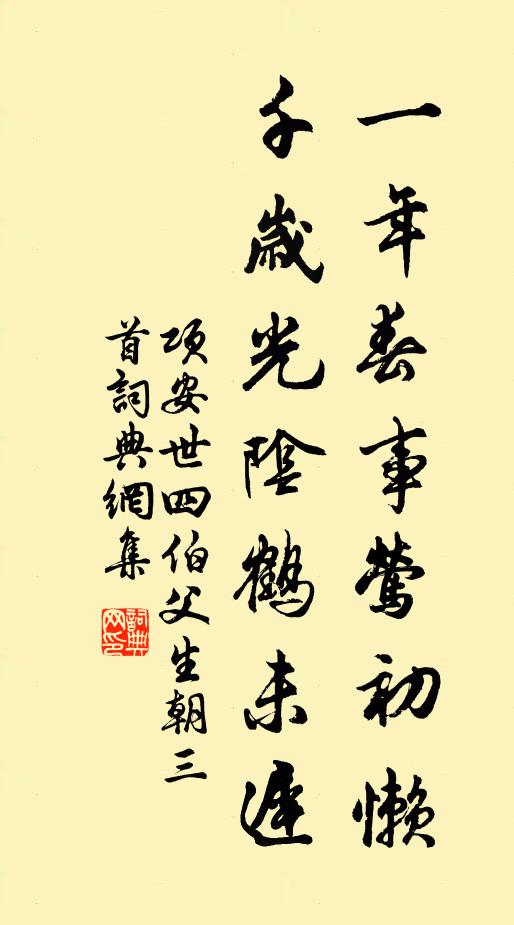 一年春事鶯初懶
千歲光陰鶴未遲
項安世四伯父生朝三
首詞典網集
詞典
网印